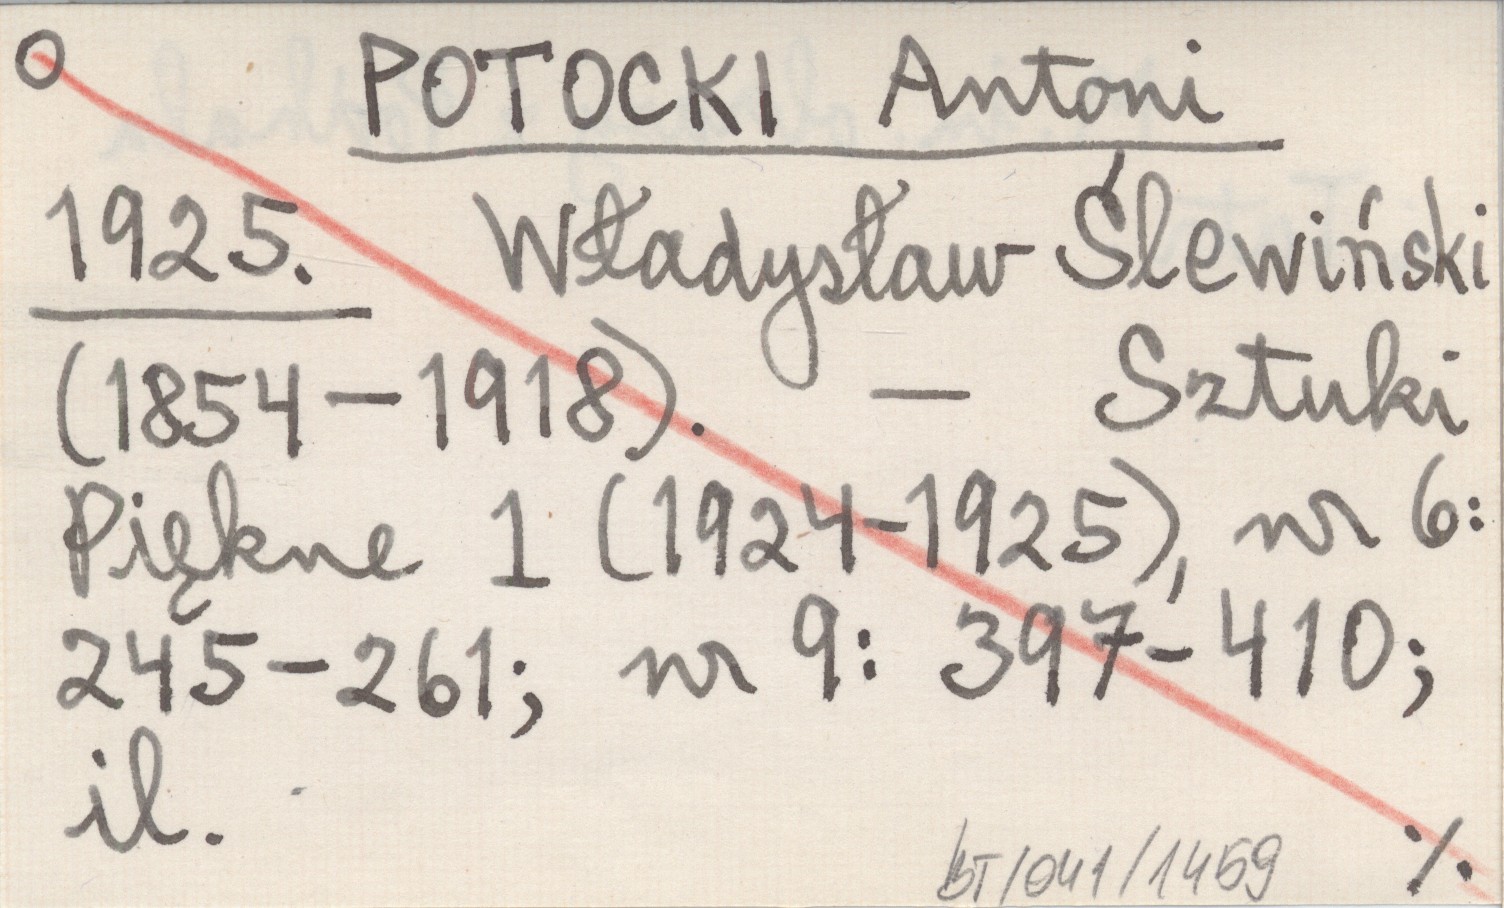 O POTOCKI Antoni
1925. Władysław Ślewiński
(1854-1918). — Sztuki
Piękne 1 (1924-1925), nr 6:
245-261; nr 9: 397-410;
il.
BT/041/1459 ./.